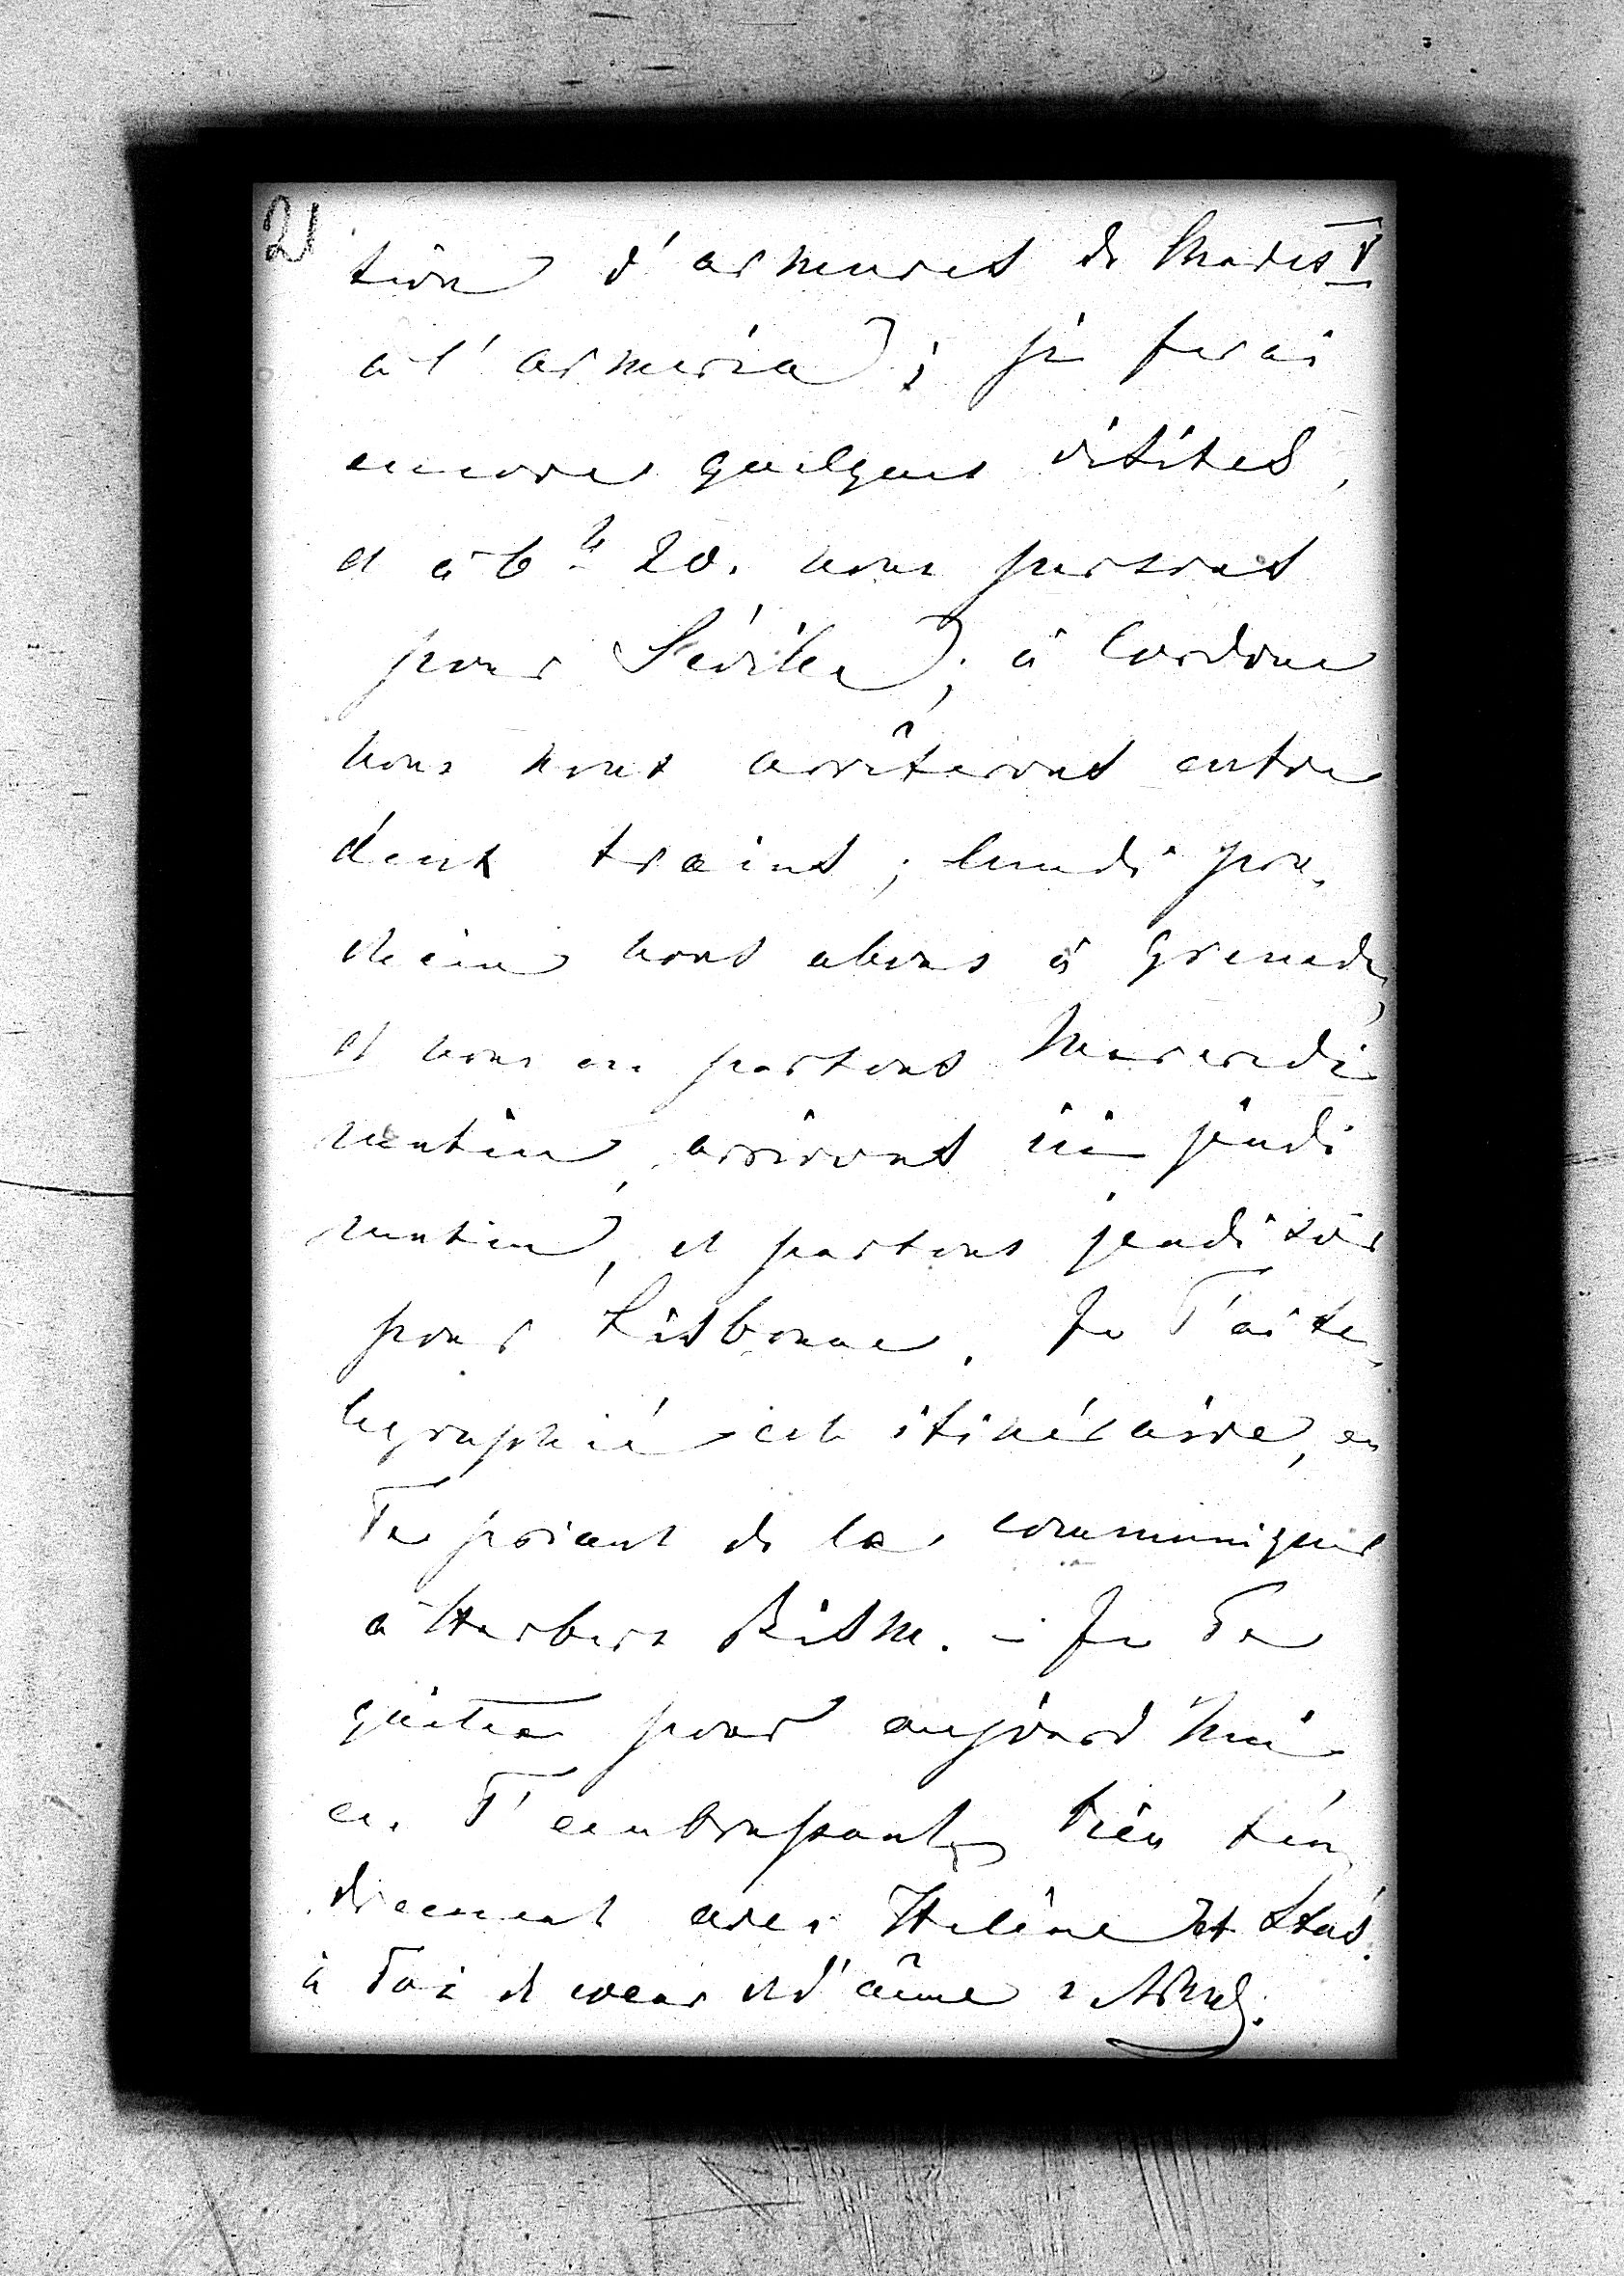 21
tion d'armures de Charles V
à l'armeria; je ferai
encore quelques visites,
et à 6 h 20. nous partons
pour Séville; à Cordoue
nous nous arrêterons entre
deux trains; lundi pro-
chain nous allons à Grenade,
et nous en partons Mercredi
matin, arrivons ici jeudi
matin, et partons jeudi soir
pour Lisbonne. Je T'ai té-
légraphié cet itinéraire, en
Te priant de le communiquer
à Herbert Bism. – Je Te
quitte pour aujourd'hui
en T'embrassant bien ten-
drement avec Hélène et Stas.
à Toi de coeur et d'âme